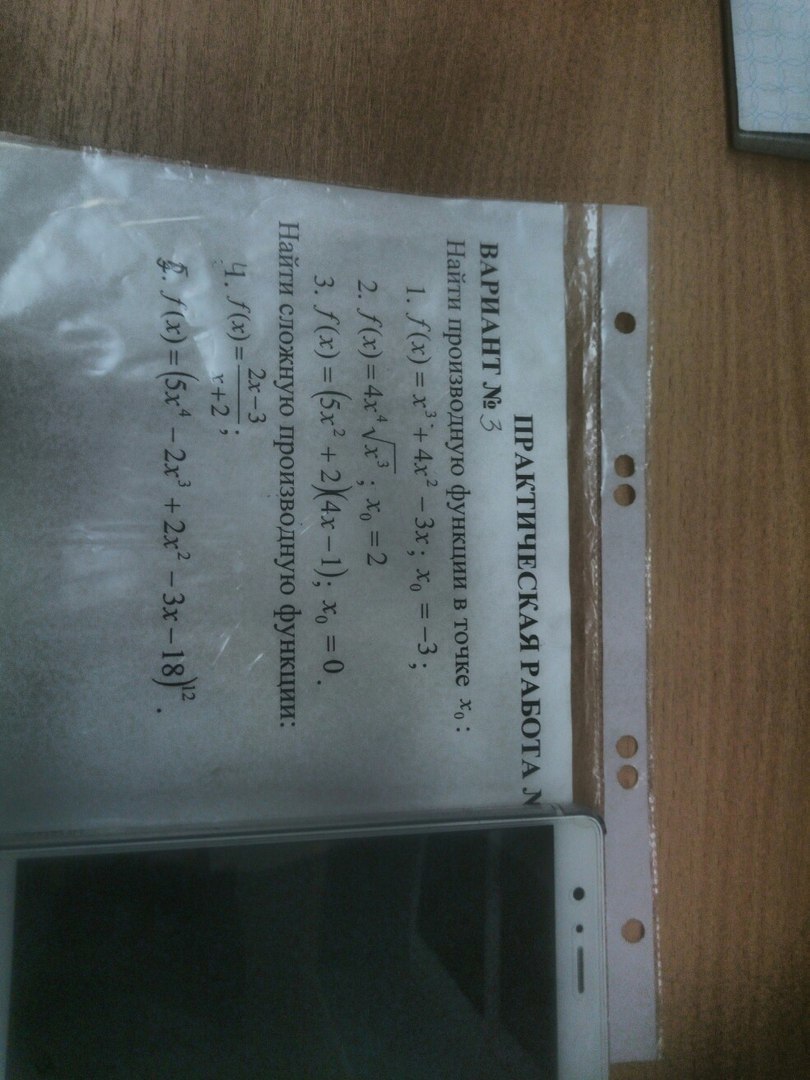 ПРАКТИЧЕСКАЯ РАБОТА №
ВАРИАНТ № 3
Найти производную функции в точке x₀ :
1. f(x) = x³ + 4x² − 3x ; x₀ = −3 ;
2. f(x) = 4x⁴ √x³ ; x₀ = 2
3. f(x) = (5x² + 2)(4x − 1) ; x₀ = 0 .
Найти сложную производную функции:
4. f(x) = (2x − 3)/(x + 2) ;
5. f(x) = (5x⁴ − 2x³ + 2x² − 3x − 18)¹² .